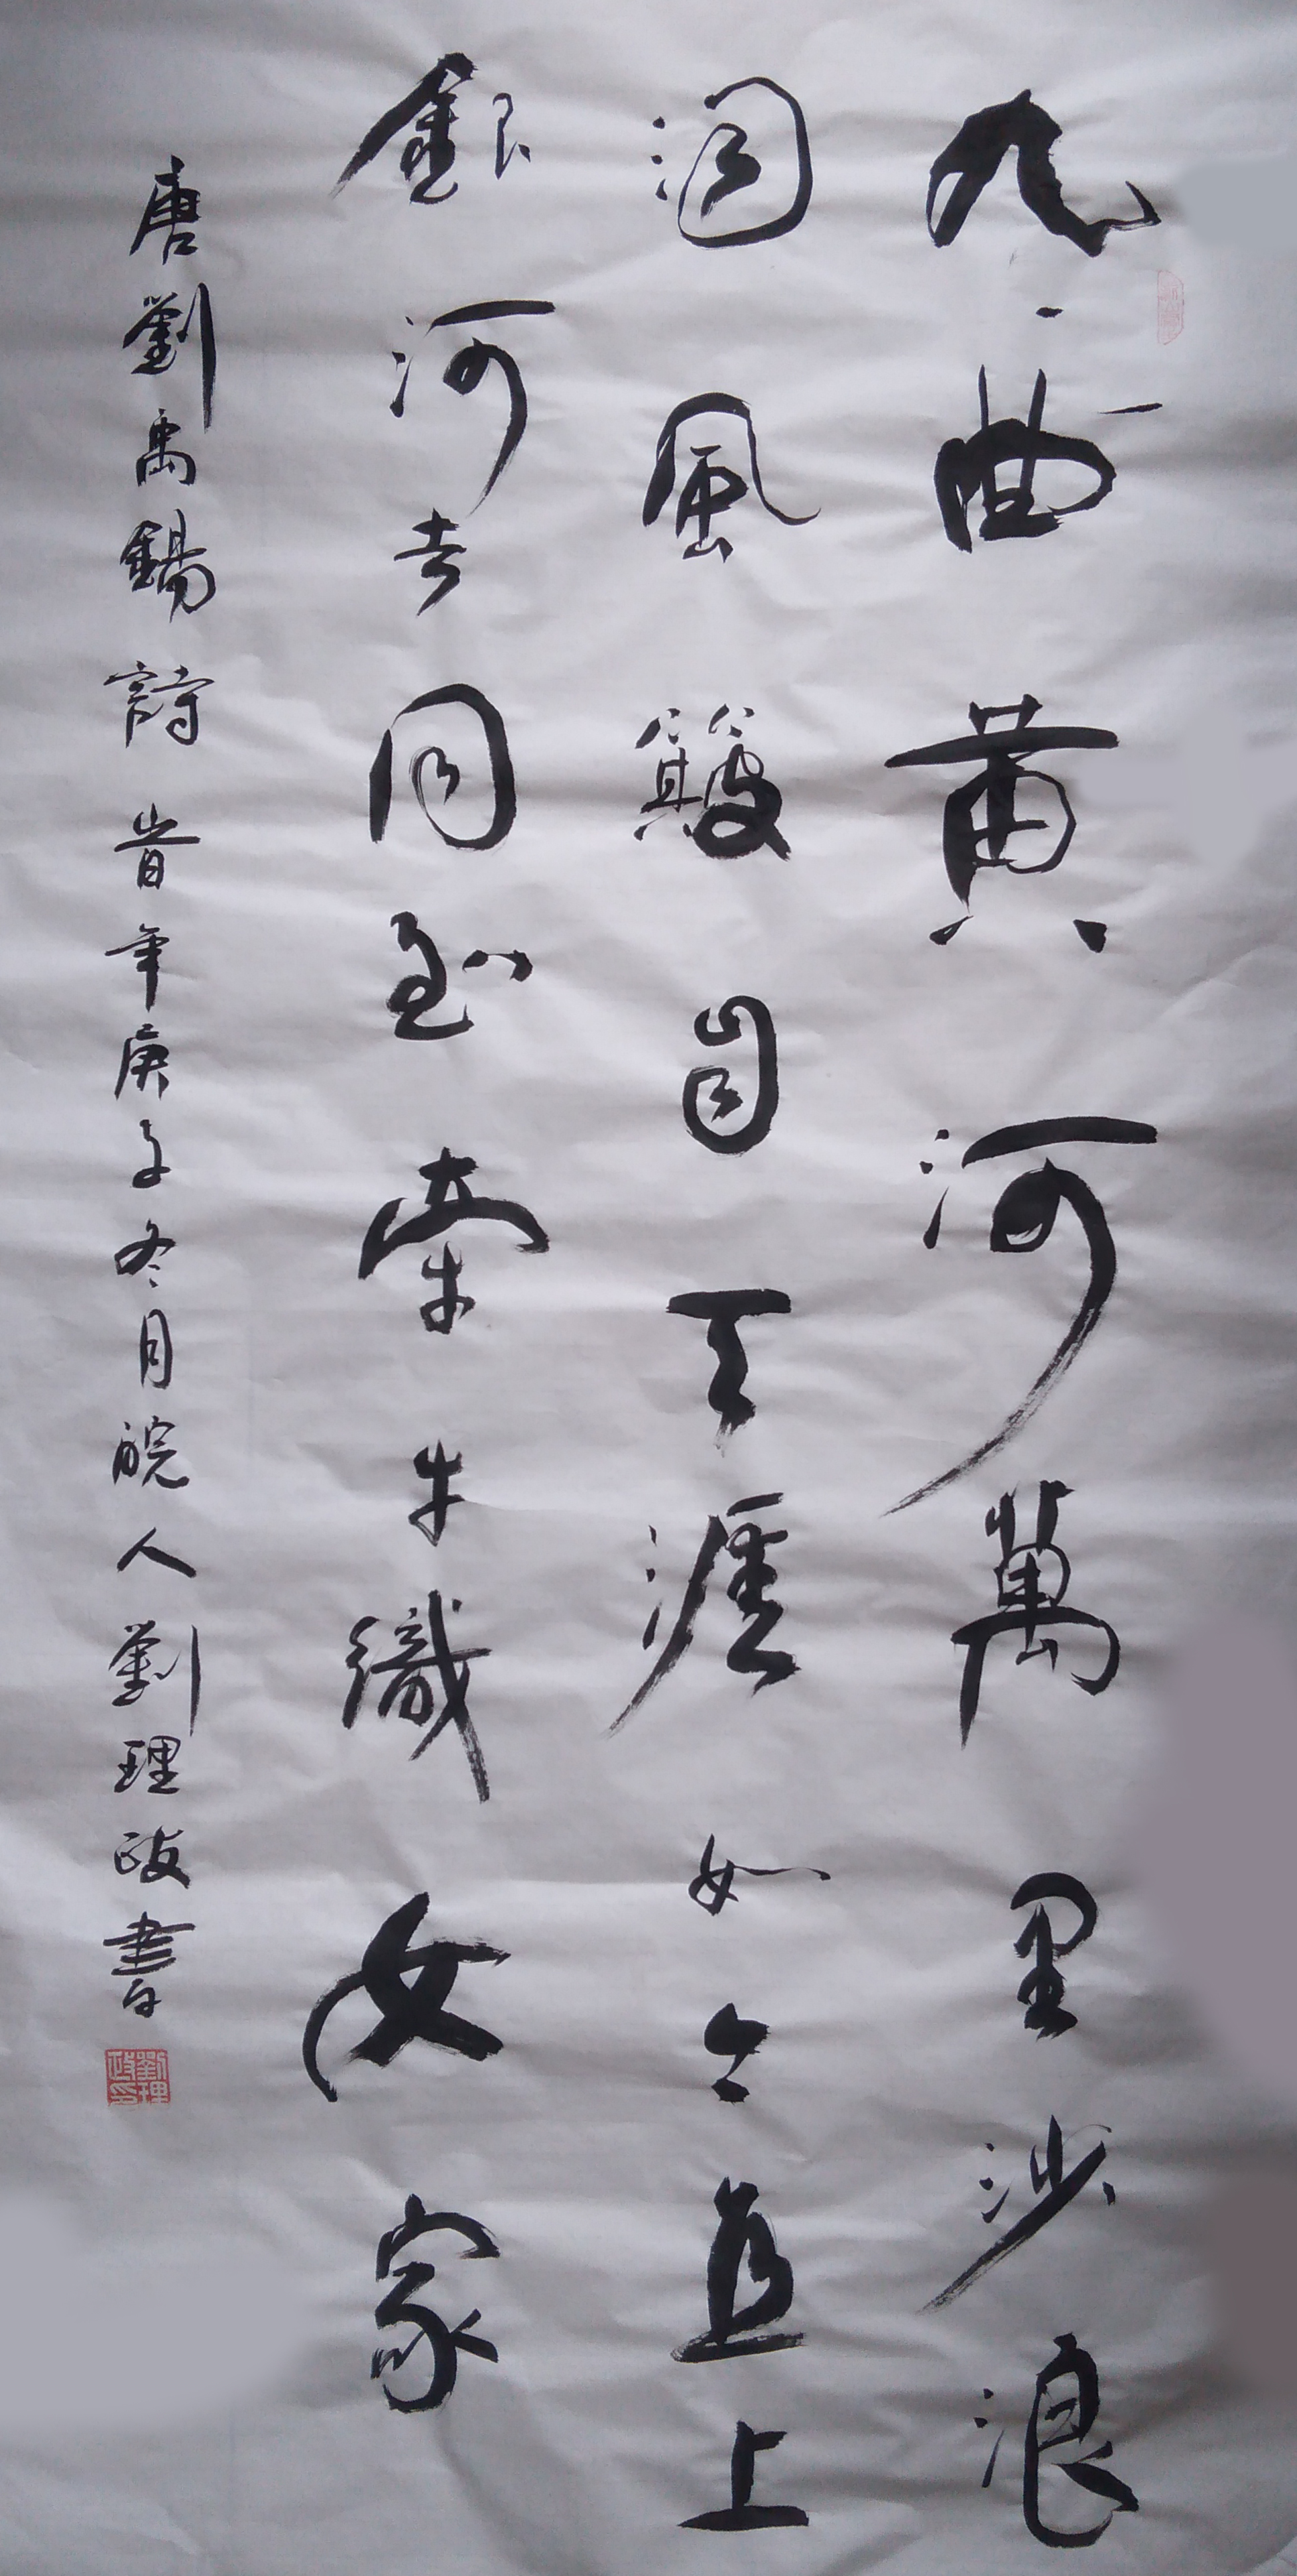 九曲黃河萬里沙浪
淘風簸自天涯如今直上
銀河去同到牽牛織女家
唐劉禹錫詩 時年庚子冬月皖人劉理政書
劉理政印